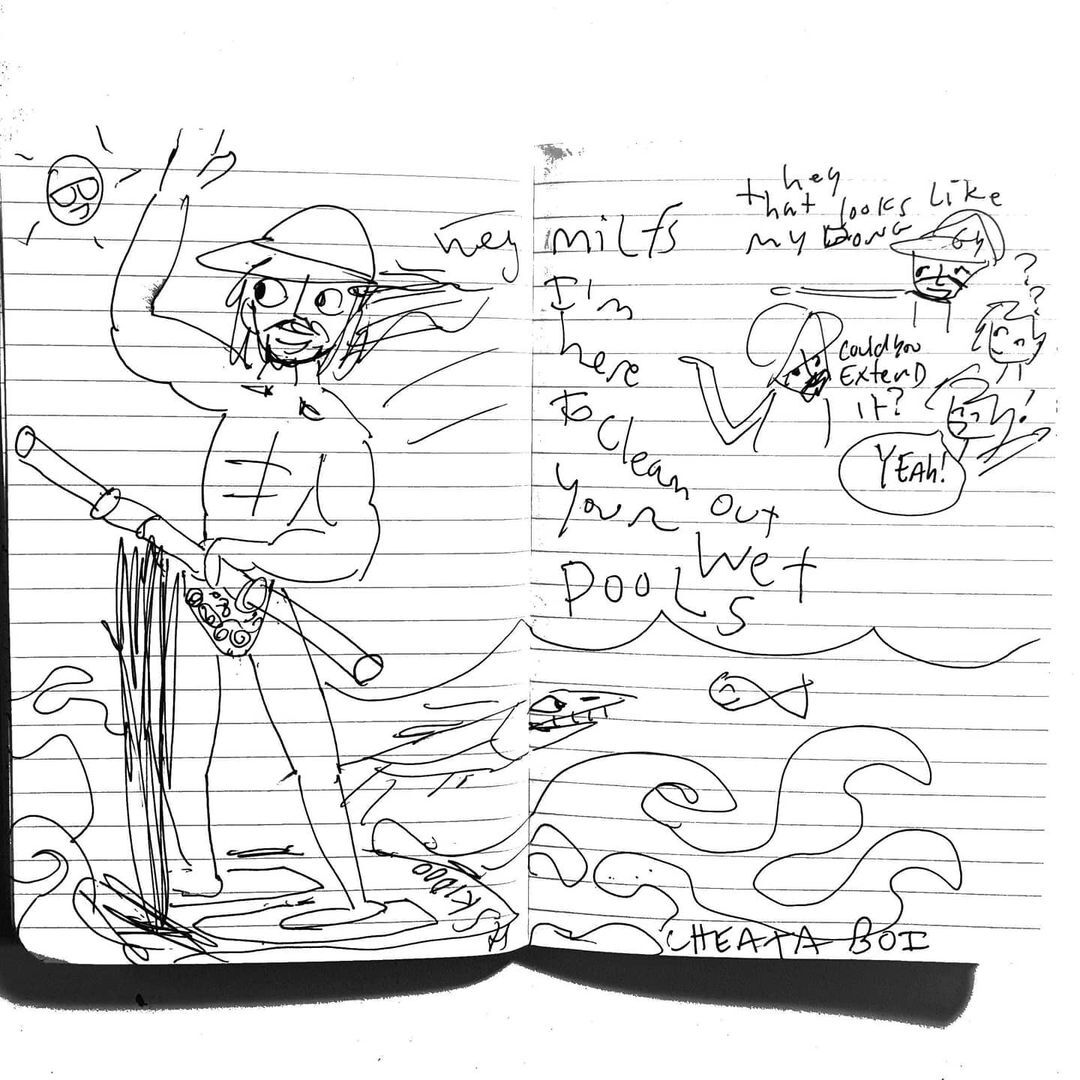 hey milfs
I'm
here
to clean out
your wet
pools
hey
that looks like
my
could you
EXTEND
it?
?
?
!
YEAh!
KIDDO
CHEATA BOI